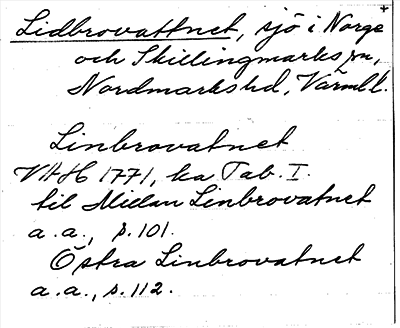 Lidbrovattnet, sjö i Norge
och Skillingmarks sn,
Nordmarks hd, Värml.
Linbrovatnet
VAH 1771, ka Tab. I.
til Mellan Linbrovatnet
a.a., s. 101.
Östra Linbrovatnet
a.a., s. 112.